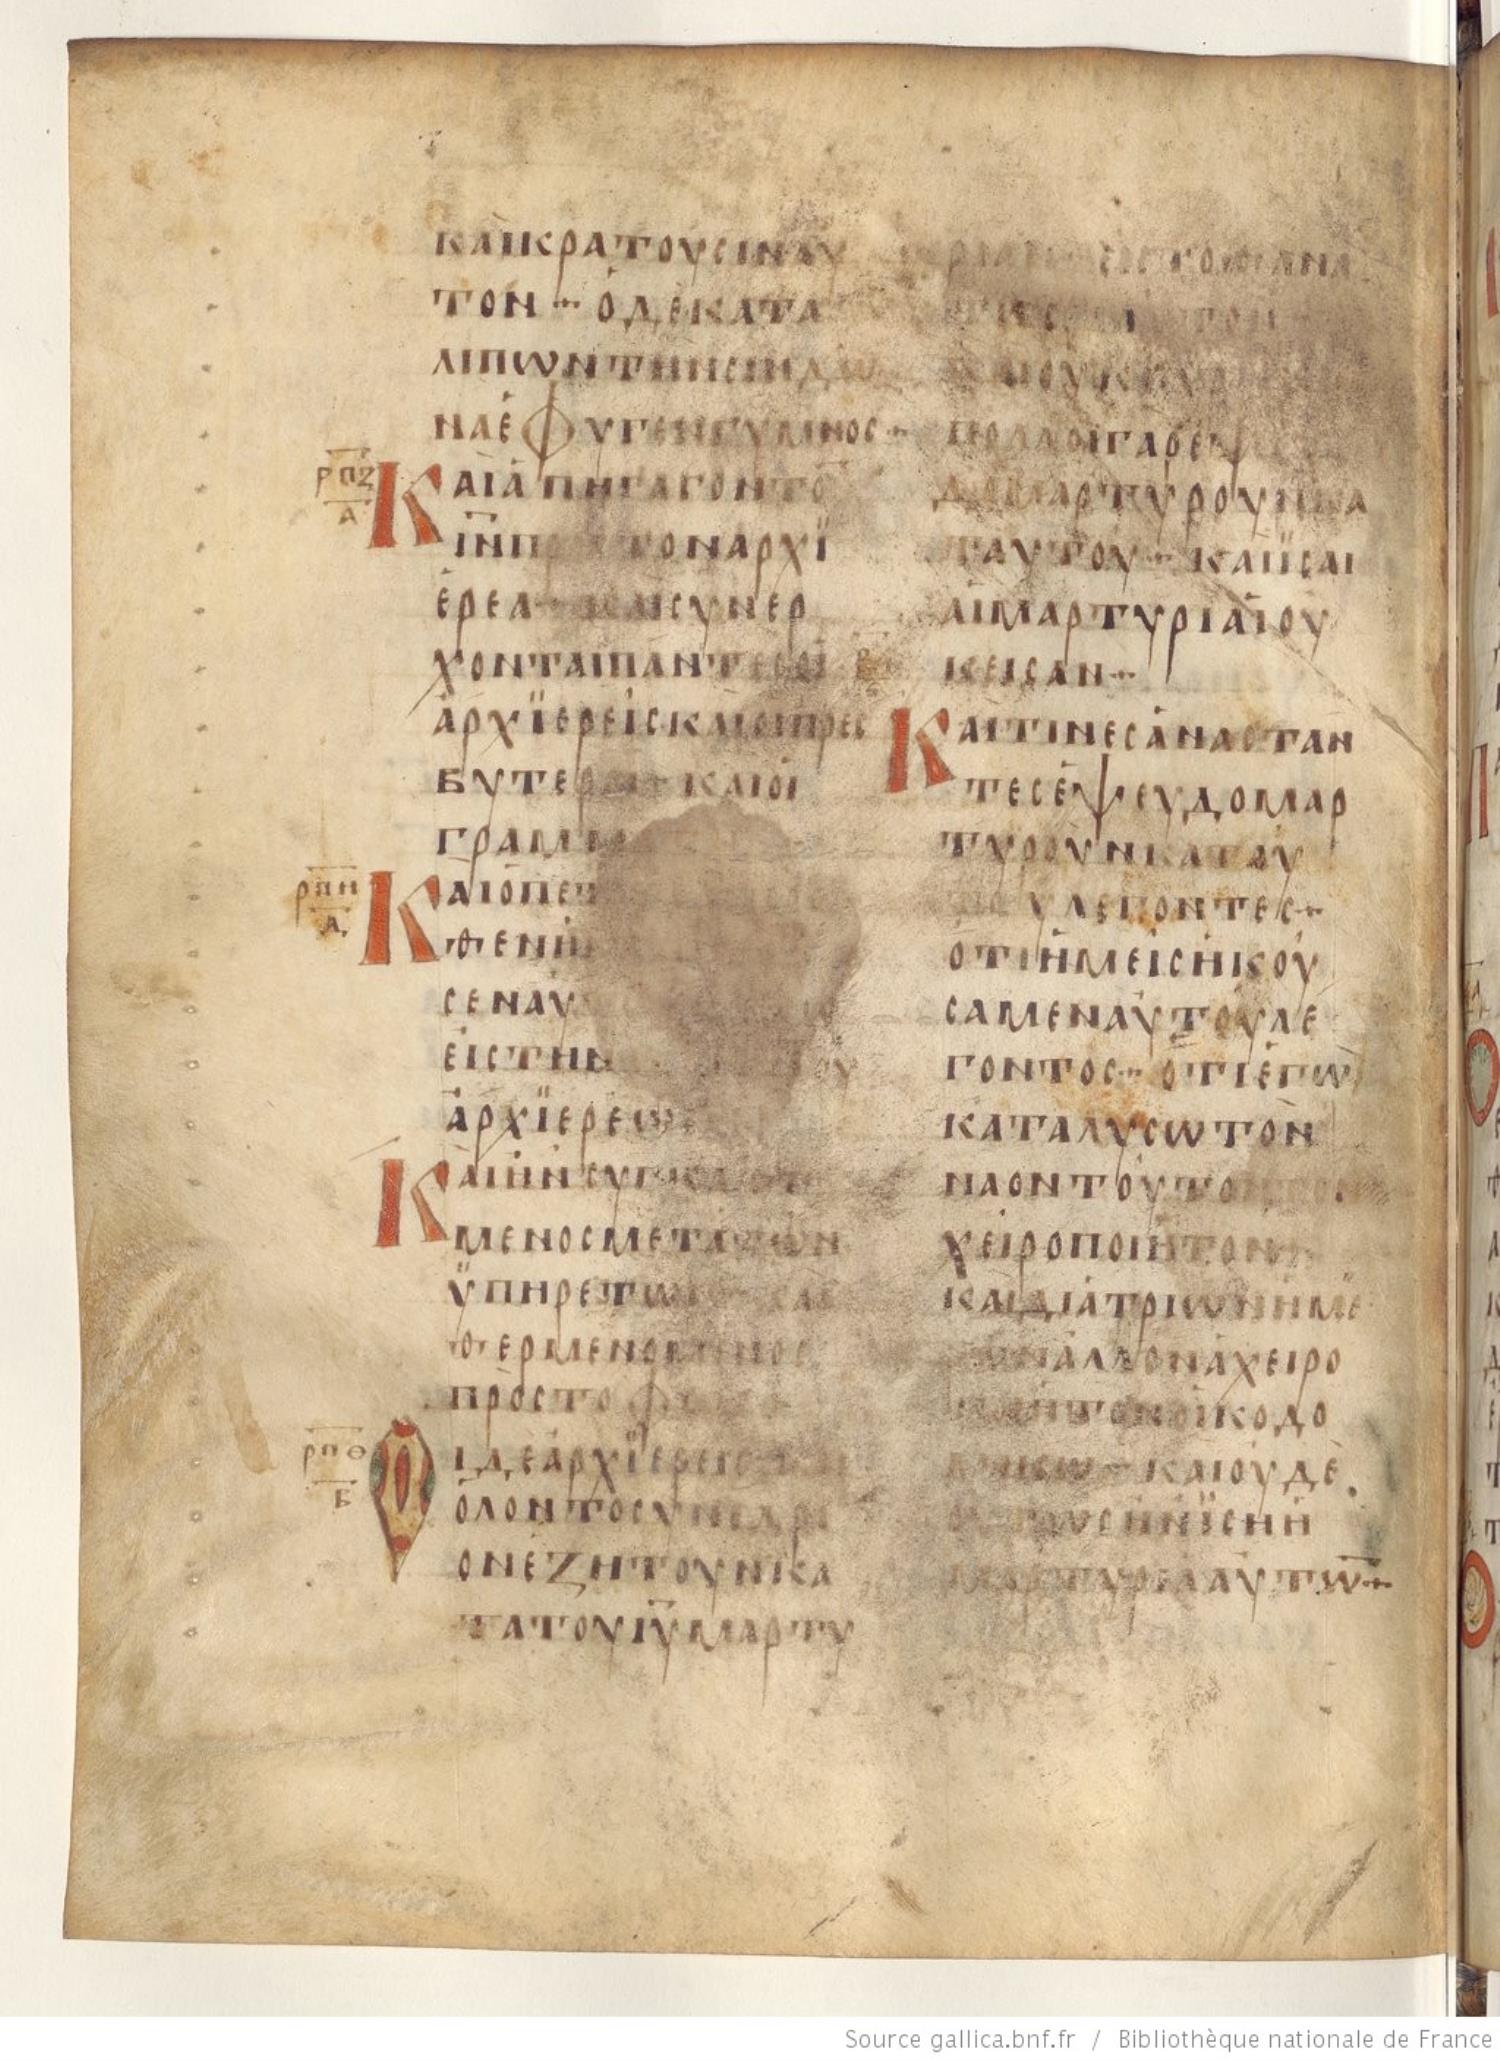 ΚΑΙΚΡΑΤΟΥCΙΝΑΥ
ΤΟΝ ΟΔΕΚΑΤΑ
ΛΙΠΩΝΤΗΝCΙΝΔΩ
ΝΑΕΦΥΓΕΝΓΥΜΝΟC
ΡΠΖ
Α
ΚΑΙΑΠΗΓΑΓΟΝΤΟ
ΙΝΠΡΟCΤΟΝΑΡΧΪ
ΕΡΕΑ ΚΑΙCΥΝΕΡ
ΧΟΝΤΑΙΠΑΝΤΕCΟΙ
ΑΡΧΪΕΡΕΙCΚΑΙΟΙΠΡΕC
ΒΥΤΕΡΟΙ ΚΑΙΟΙ
ΓΡΑΜΜ
ΡΠΗ
Δ
ΚΑΙΟΠΕΤ
ΘΕΝΗ
CΕΝΑΥ
ΕΙCΤΗΝ
ΑΡΧΪΕΡΕΩ
ΚΑΙΗΝCΥΓΚΑ
ΜΕΝΟCΜΕΤΑΤΩΝ
ΫΠΗΡΕΤΩΝ ΚΑΙ
ΘΕΡΜΕΝΟΜΕΝΟC
ΠΡΟCΤΟΦ
ΡΠΘ
Β
ΟΙΔΕΑΡΧΪΕΡΕΙC
ΟΛΟΝΤΟCΥΝΕΔΡΙ
ΟΝΕΖΗΤΟΥΝΚΑ
ΤΑΤΟΥΙΥΜΑΡΤΥ
ΡΙΑΝ ΕΙCΤΟΘΑΝΑ
ΠΟΛΛΟΙΓΑΡΕΨ
ΔΟΜΑΡΤΥΡΟΥΝΚΑ
ΤΑΥΤΟΥ ΚΑΙΪCΑΙ
ΑΙΜΑΡΤΥΡΙΑΙΟΥ
ΚΕΙCΑΝ
ΚΑΙΤΙΝΕCΑΝΑCΤΑΝ
ΤΕCΕΨΕΥΔΟΜΑΡ
ΤΥΡΟΥΝΚΑΤΑΥ
ΤΟΥΛΕΓΟΝΤΕC
ΟΤΙΗΜΕΙCΗΚΟΥ
CΑΜΕΝΑΥΤΟΥΛΕ
ΓΟΝΤΟC ΟΤΙΕΓΩ
ΚΑΤΑΛΥCΩΤΟΝ
ΝΑΟΝΤΟΥΤΟΝΤΟΝ
ΧΕΙΡΟΠΟΙΗΤΟΝ
ΚΑΙΔΙΑΤΡΙΩΝΗΜΕ
ΡΩΝΑΛΛΟΝΑΧΕΙΡΟ
ΠΟΙΗΤΟΝΟΙΚΟΔΟ
ΜΗCΩ ΚΑΙΟΥΔΕ
ΟΥΤΩCΗΝΪCΗΗ
ΜΑΡΤΥΡΙΑΑΥΤΩ
Source gallica.bnf.fr / Bibliothèque nationale de France